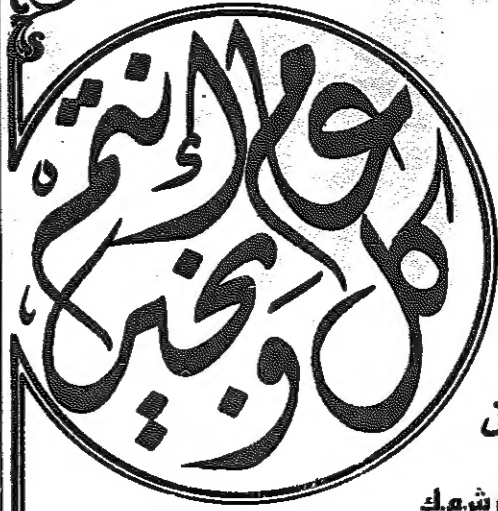 كل عام وأنتم بخير
ش.م.ك